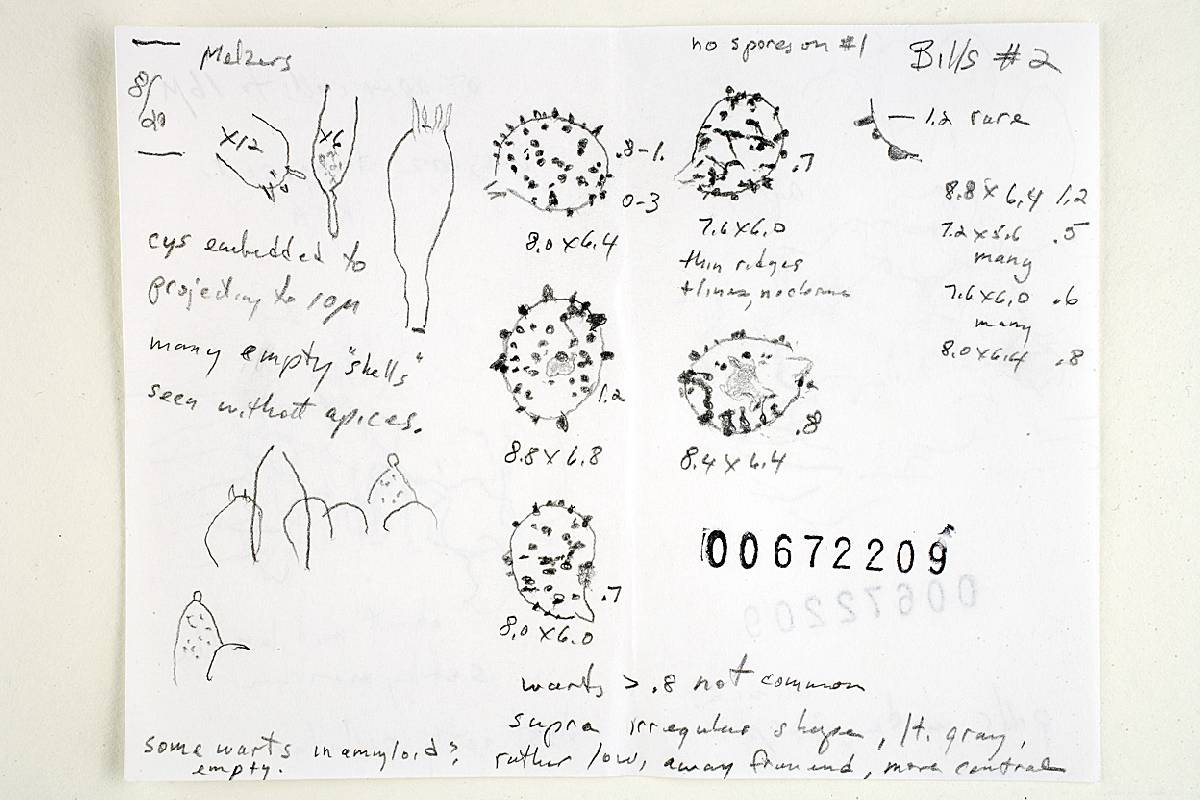 Melzers
8/20
x12
x6
cys embedded to
projecting to 10µ
many empty "shells"
seen without apices.
some warts inamyloid?
empty.
no spores on #1
Bills #2
.3-1.
0-3
8.0 x 6.4
1.2
8.8 x 6.8
.7
8.0 x 6.0
.7
7.6 x 6.0
thin ridges
+ lines, no
.8
8.4 x 6.4
1.2 rare
8.8 x 6.4 1.2
7.2 x 5.6 .5
many
7.6 x 6.0 .6
many
8.0 x 6.4 .8
00672209
warts > .8 not common
supra irregular shape, lt. gray,
rather low, away from end, more central